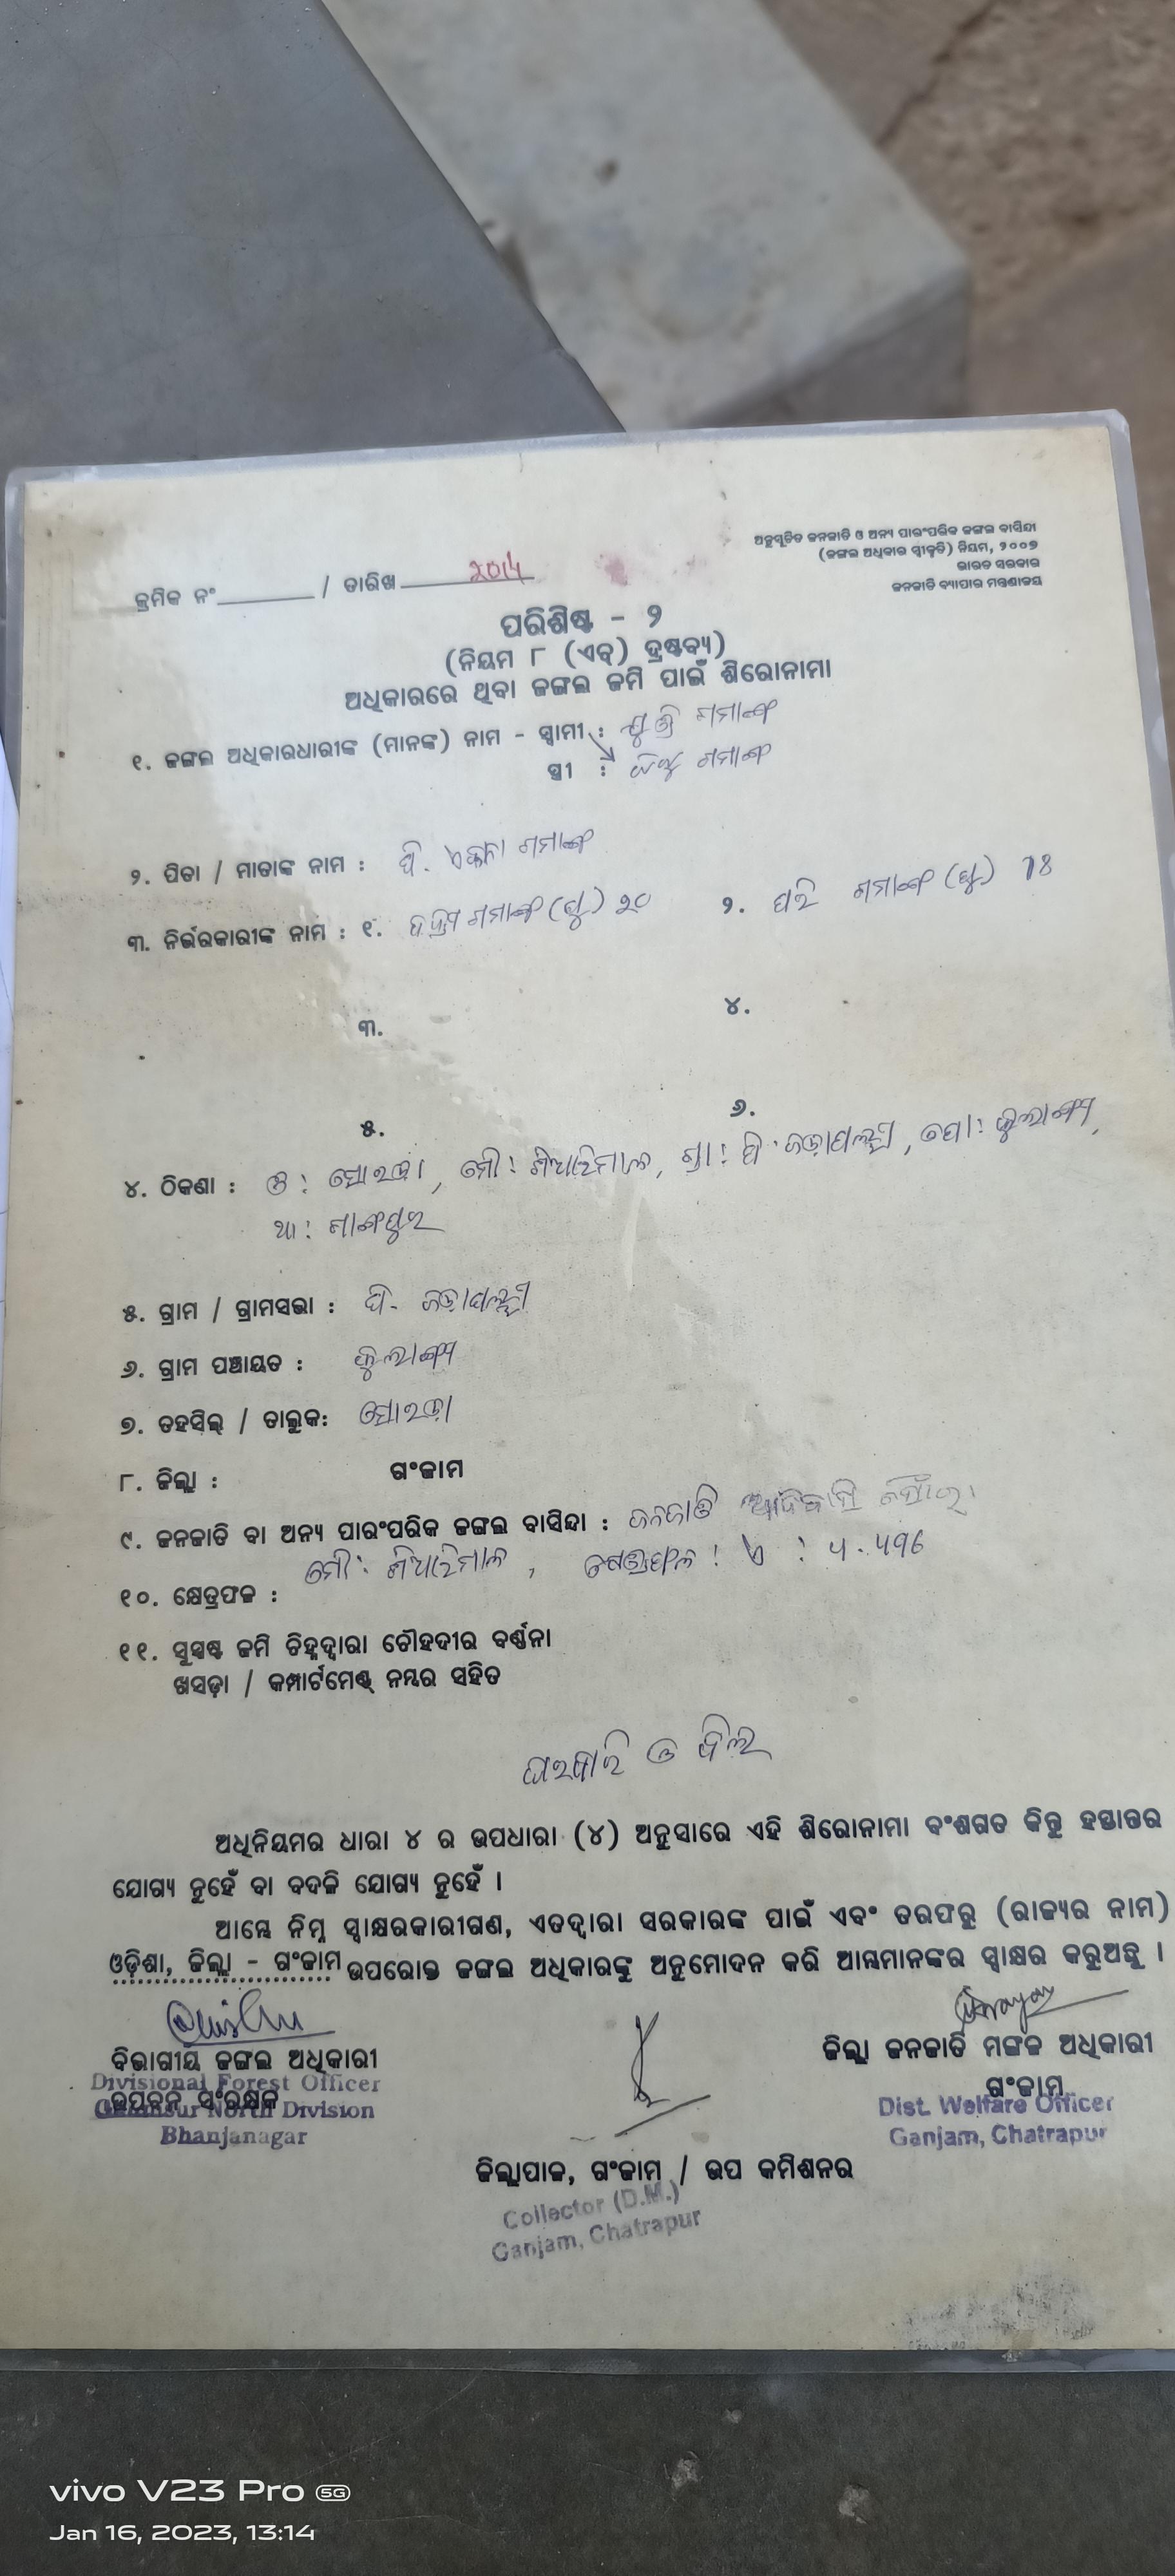 ଅନୁସୂଚିତ ଜନଜାତି ଓ ଅନ୍ୟ ପାରଂପରିକ ଜଙ୍ଗଲ ବାସିନ୍ଦା
(ଜଙ୍ଗଲ ଅଧିକାର ସ୍ୱୀକୃତି) ନିୟମ, ୨୦୦୭
ଭାରତ ସରକାର
ଜନଜାତି ବ୍ୟାପାର ମନ୍ତ୍ରଣାଳୟ
କ୍ରମିକ ନଂ / ତାରିଖ 2014
ପରିଶିଷ୍ଟ - ୨
(ନିୟମ ୮ (ଏଚ୍) ଦ୍ରଷ୍ଟବ୍ୟ)
ଅଧିକାରରେ ଥିବା ଜଙ୍ଗଲ ଜମି ପାଇଁ ଶିରୋନାମା
୧. ଜଙ୍ଗଲ ଅଧିକାରଧାରୀଙ୍କ (ମାନଙ୍କ) ନାମ - ସ୍ୱାମୀ : ଗମାଙ୍ଗ
ସ୍ତ୍ରୀ : ଗମାଙ୍ଗ
୨. ପିତା / ମାତାଙ୍କ ନାମ : ପି. ଗମାଙ୍ଗ
୩. ନିର୍ଭରକାରୀଙ୍କ ନାମ : ୧. ଗମାଙ୍ଗ (ପୁ) ୨୦ ୨. ଗମାଙ୍ଗ (ପୁ) 18
୩. ୪.
୫. ୬.
୪. ଠିକଣା : ତ : ସୋରଡ଼ା, ମୌ : ଶିଆରିମାଳ, ଗ୍ରା : ପି. ଜଡ଼ାପଲ୍ଲୀ, ପୋ :
ଥା : ଗାଙ୍ଗପୁର
୫. ଗ୍ରାମ / ଗ୍ରାମସଭା : ପି. ଜଡ଼ାପଲ୍ଲୀ
୬. ଗ୍ରାମ ପଞ୍ଚାୟତ :
୭. ତହସିଲ୍ / ତାଲୁକ: ସୋରଡ଼ା
୮. ଜିଲ୍ଲା : ଗଂଜାମ
୯. ଜନଜାତି ବା ଅନ୍ୟ ପାରଂପରିକ ଜଙ୍ଗଲ ବାସିନ୍ଦା : ଜନଜାତି ଆଦିବାସୀ
ମୌ : ଶିଆରିମାଳ, କ୍ଷେତ୍ରଫଳ : ଏ :
୧୦. କ୍ଷେତ୍ରଫଳ :
୧୧. ସୁସ୍ପଷ୍ଟ ଜମି ଚିହ୍ନଦ୍ୱାରା ଚୌହଦୀର ବର୍ଣ୍ଣନା
ଖସଡ଼ା / କମ୍ପାର୍ଟମେଣ୍ଟ୍ ନମ୍ବର ସହିତ
ଘରବାରି ଓ ବିଲ
ଅଧିନିୟମର ଧାରା ୪ ର ଉପଧାରା (୪) ଅନୁସାରେ ଏହି ଶିରୋନାମା ବଂଶଗତ କିନ୍ତୁ ହସ୍ତାନ୍ତର
ଯୋଗ୍ୟ ନୁହେଁ ବା ବଦଳି ଯୋଗ୍ୟ ନୁହେଁ ।
ଆମ୍ଭେ ନିମ୍ନ ସ୍ୱାକ୍ଷରକାରୀଗଣ, ଏତଦ୍ୱାରା ସରକାରଙ୍କ ପାଇଁ ଏବଂ ତରଫରୁ (ରାଜ୍ୟର ନାମ)
ଓଡ଼ିଶା, ଜିଲ୍ଲା - ଗଂଜାମ ଉପରୋକ୍ତ ଜଙ୍ଗଲ ଅଧିକାରଙ୍କୁ ଅନୁମୋଦନ କରି ଆମ୍ଭମାନଙ୍କର ସ୍ୱାକ୍ଷର କରୁଅଛୁ ।
ବିଭାଗୀୟ ଜଙ୍ଗଲ ଅଧିକାରୀ
ଉପବନ ସଂରକ୍ଷକ
Divisional Forest Officer
Ghumsur North Division
Bhanjanagar
ଜିଲ୍ଲା ଜନଜାତି ମଙ୍ଗଳ ଅଧିକାରୀ
ଗଂଜାମ
Dist. Welfare Officer
Ganjam, Chatrapur
ଜିଲ୍ଲାପାଳ, ଗଂଜାମ / ଉପ କମିଶନର
Collector (D.M.)
Ganjam, Chatrapur
vivo V23 Pro 5G
Jan 16, 2023, 13:14